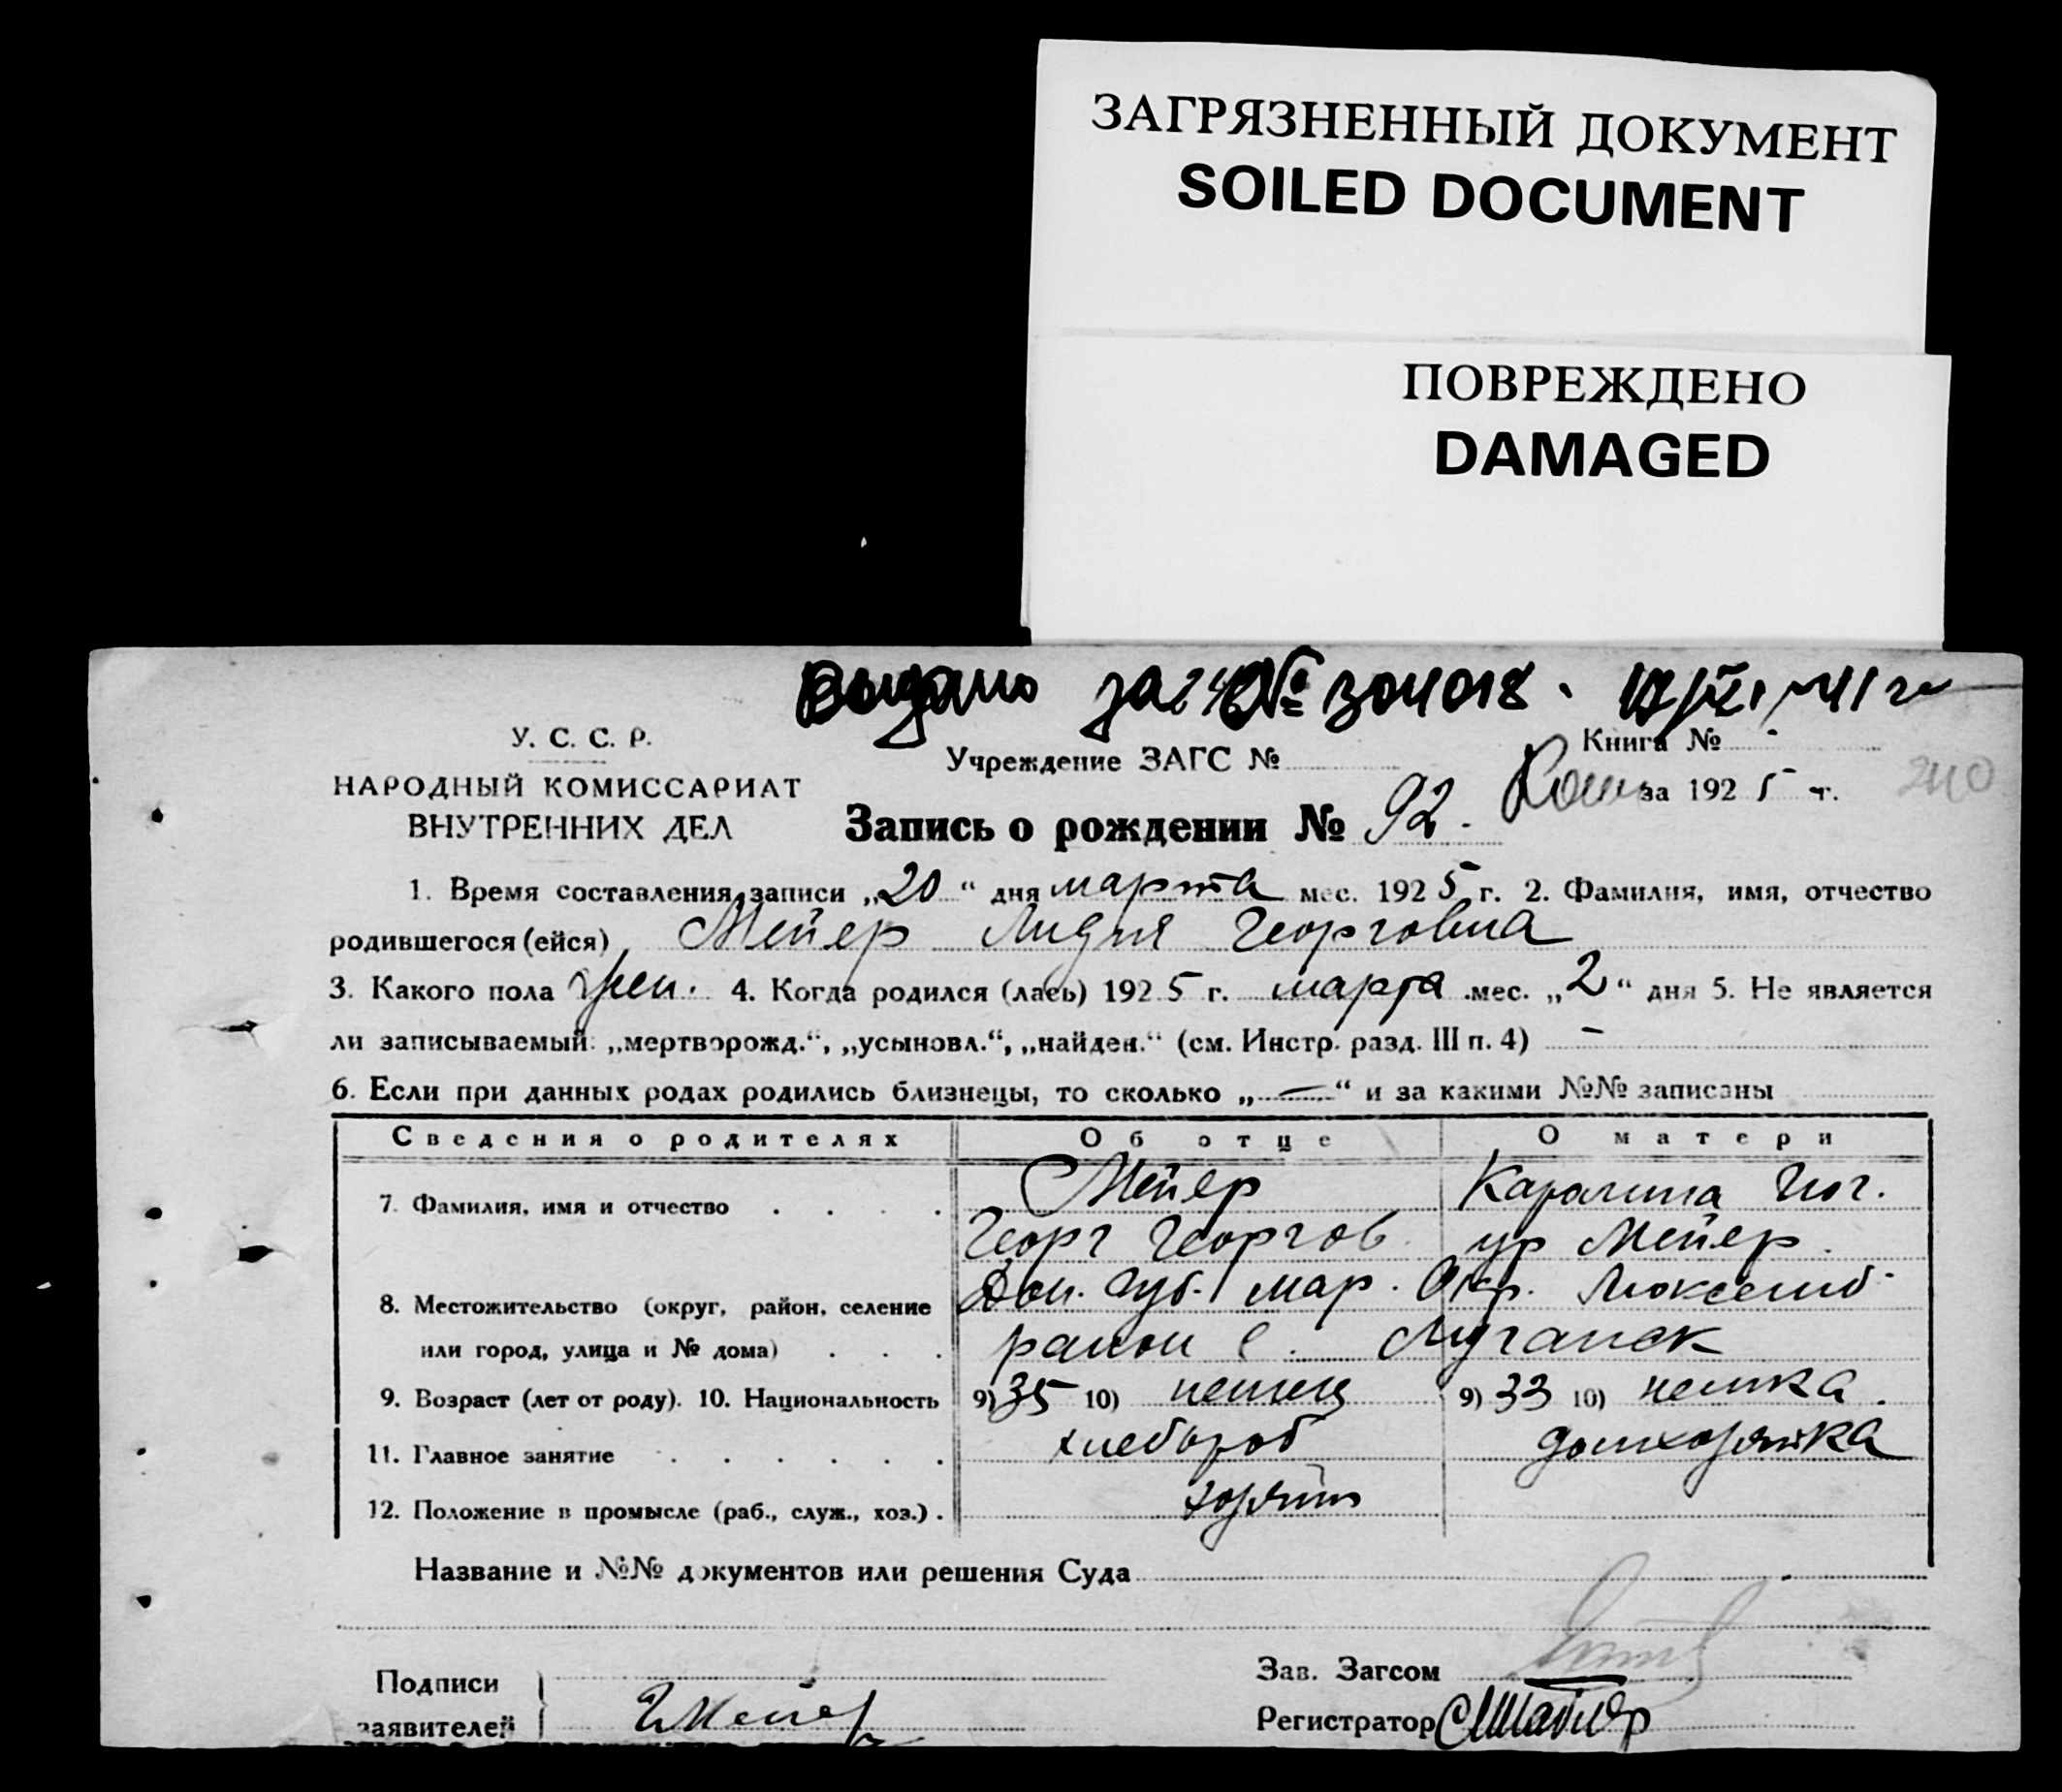 ЗАГРЯЗНЕННЫЙ ДОКУМЕНТ
SOILED DOCUMENT
ПОВРЕЖДЕНО
DAMAGED
Выдано за №
У. С. С. Р.
НАРОДНЫЙ КОМИССАРИАТ
ВНУТРЕННИХ ДЕЛ
Учреждение ЗАГС №
Книга №
за 1925 г.
240
Запись о рождении № 92.
1. Время составления записи „20“ дня марта мес. 1925 г. 2. Фамилия, имя, отчество
родившегося (ейся) Мейер Лидия Георговна
3. Какого пола жен. 4. Когда родился (лась) 1925 г. марта мес. „2“ дня 5. Не является
ли записываемый: „мертворожд.“, „усыновл.“, „найден.“ (см. Инстр. разд. III п. 4) –
6. Если при данных родах родились близнецы, то сколько „—“ и за какими №№ записаны
Сведения о родителях Об отце О матери
7. Фамилия, имя и отчество Мейер Каралина
Георг Георгов. ур Мейер.
8. Местожительство (округ, район, селение Дон. Губ. Мар. Окр. Люксемб-
или город, улица и № дома) район с. Луганск
9. Возраст (лет от роду). 10. Национальность 9) 35 10) немец 9) 33 10) немка.
11. Главное занятие хлебороб домхозяйка
12. Положение в промысле (раб., служ., хоз.) хозяин
Название и №№ документов или решения Суда
Подписи
заявителей Г Мейер
Зав. Загсом
Регистратор